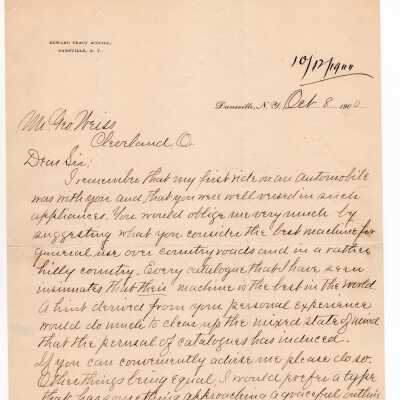 EDWARD TRACY
DANSVILLE, N. Y.
10/12/1900
Dansville, N. Y. Oct 8 1900
Mr. Geo Weiss
Cleveland O.
Dear Sir:
I remember that my first ride on an automobile
was with you and that you were well versed in such
appliances. You would oblige me very much by
suggesting what you consider the best machine for
general use over country roads and in a rather
hilly country. Every catalogue that I have seen
insinuates that their machine is the best in the world.
A hint derived from your personal experience
would do much to clear up the mixed state of mind
that the perusal of catalogues has induced.
If you can conveniently advise me please do so.
Other things being equal, I would prefer a type
that has something approaching a graceful outline